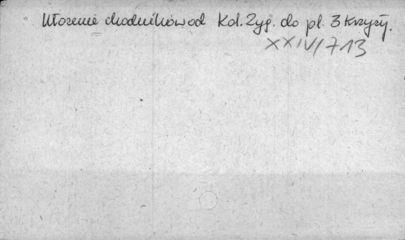 Ułożenie chodników od Kol. Zyg. do pl. 3 Krzyży.
XXIV/713